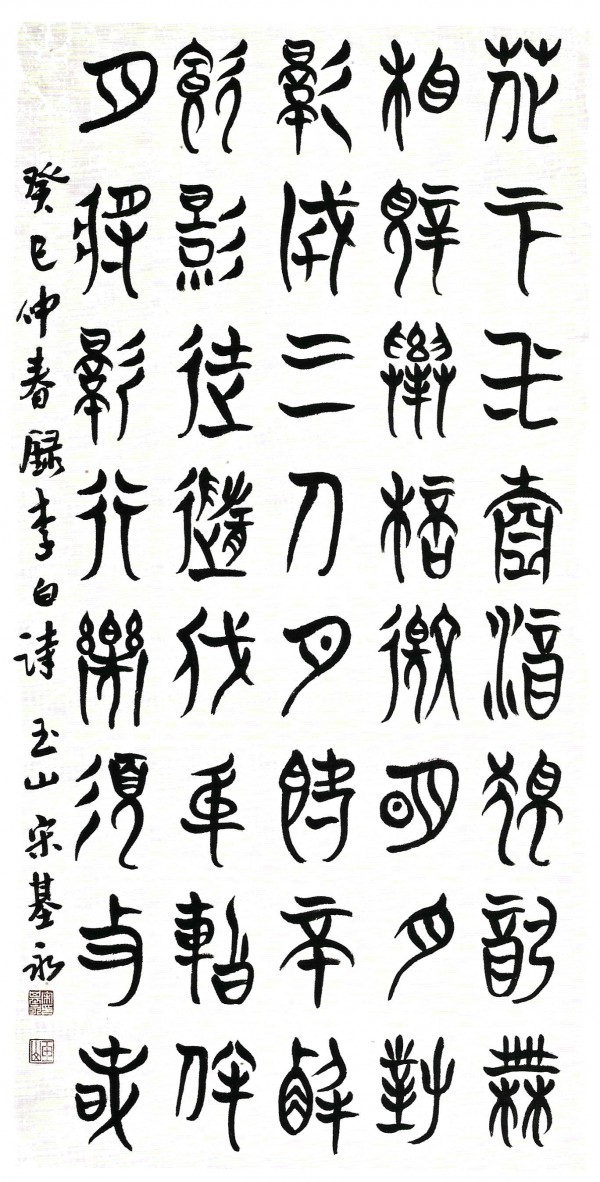 花下一壺酒獨酌無
相親舉杯邀明月對
影成三人月既不解
飲影徒隨我身暫伴
月將影行樂須及春
癸巳仲春錄李白詩 玉山 宋基永